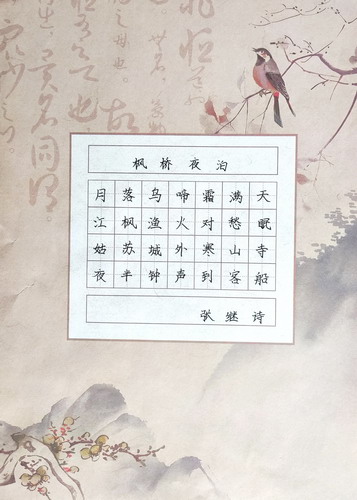 枫桥夜泊
月落乌啼霜满天
江枫渔火对愁眠
姑苏城外寒山寺
夜半钟声到客船
张继诗